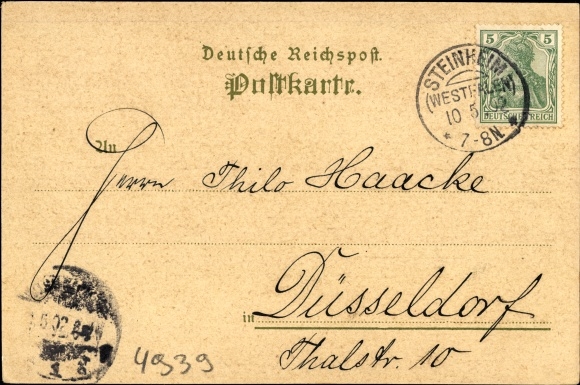 Deutsche Reichspost.
Postkarte.
5 5
DEUTSCHES REICH
STEINHEIM
(WESTFALEN)
10 5 02
* 7-8N. *
An
Herrn Thilo Haacke
in Düsseldorf
Thalstr. 10
5.02
4939